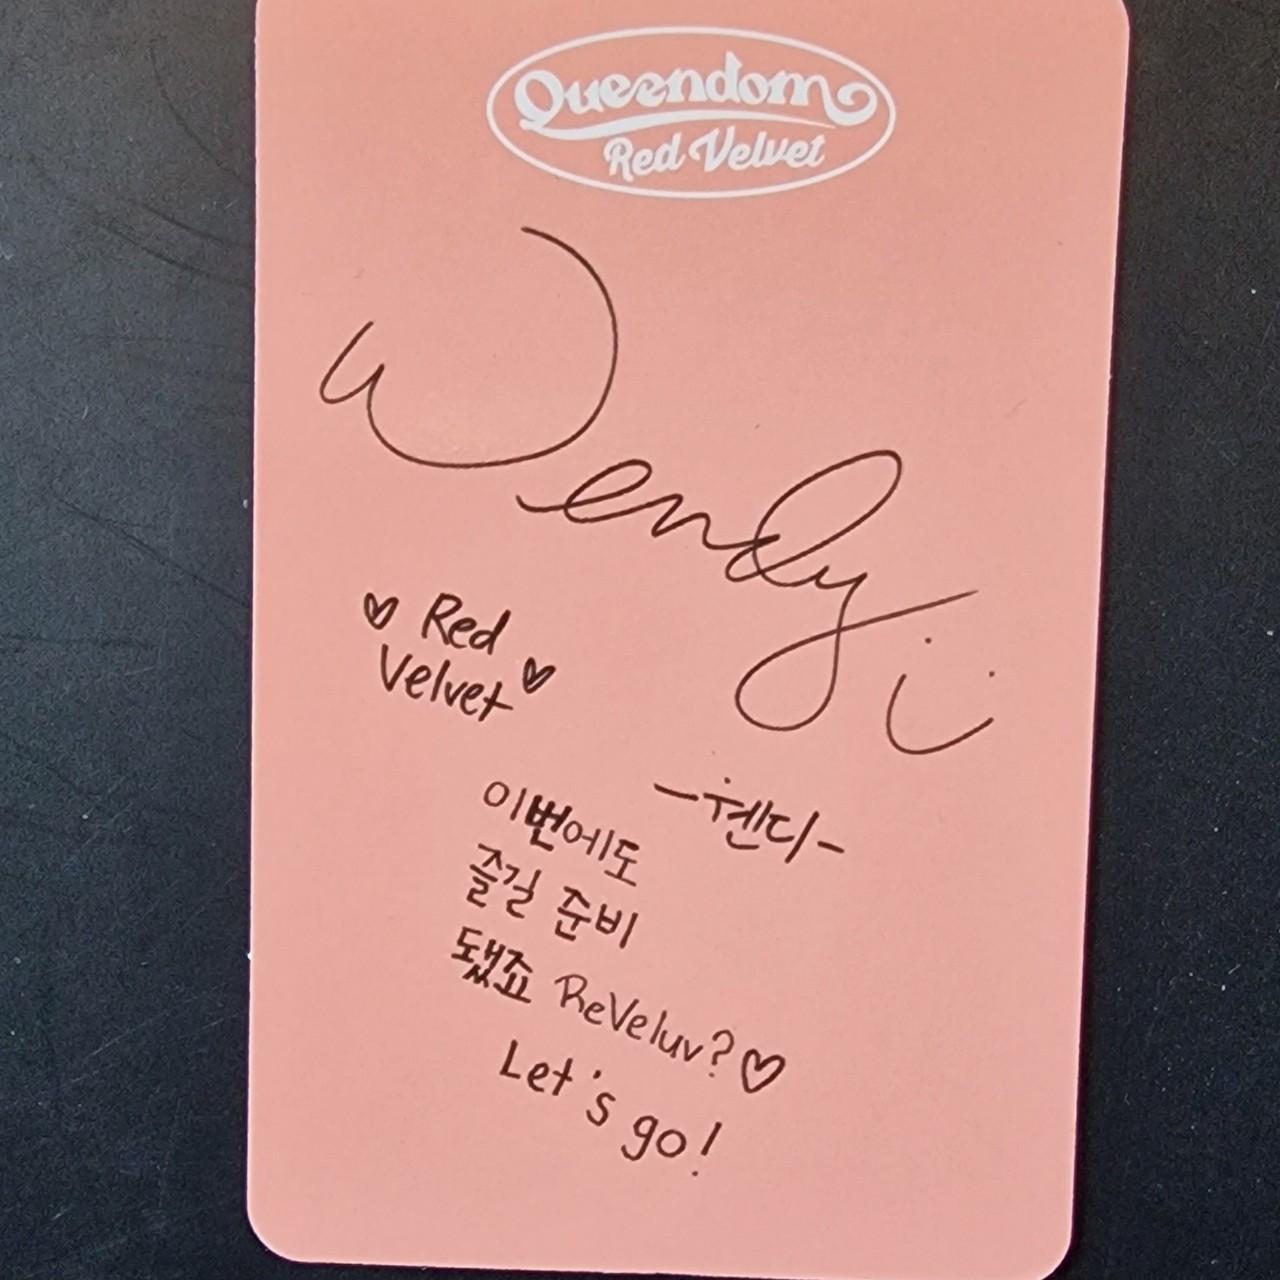 Queendom
Red Velvet
Wendy
♥ Red
Velvet ♥
-웬디-
이번에도
즐길 준비
됐죠 ReVeluv?♡
Let's go!